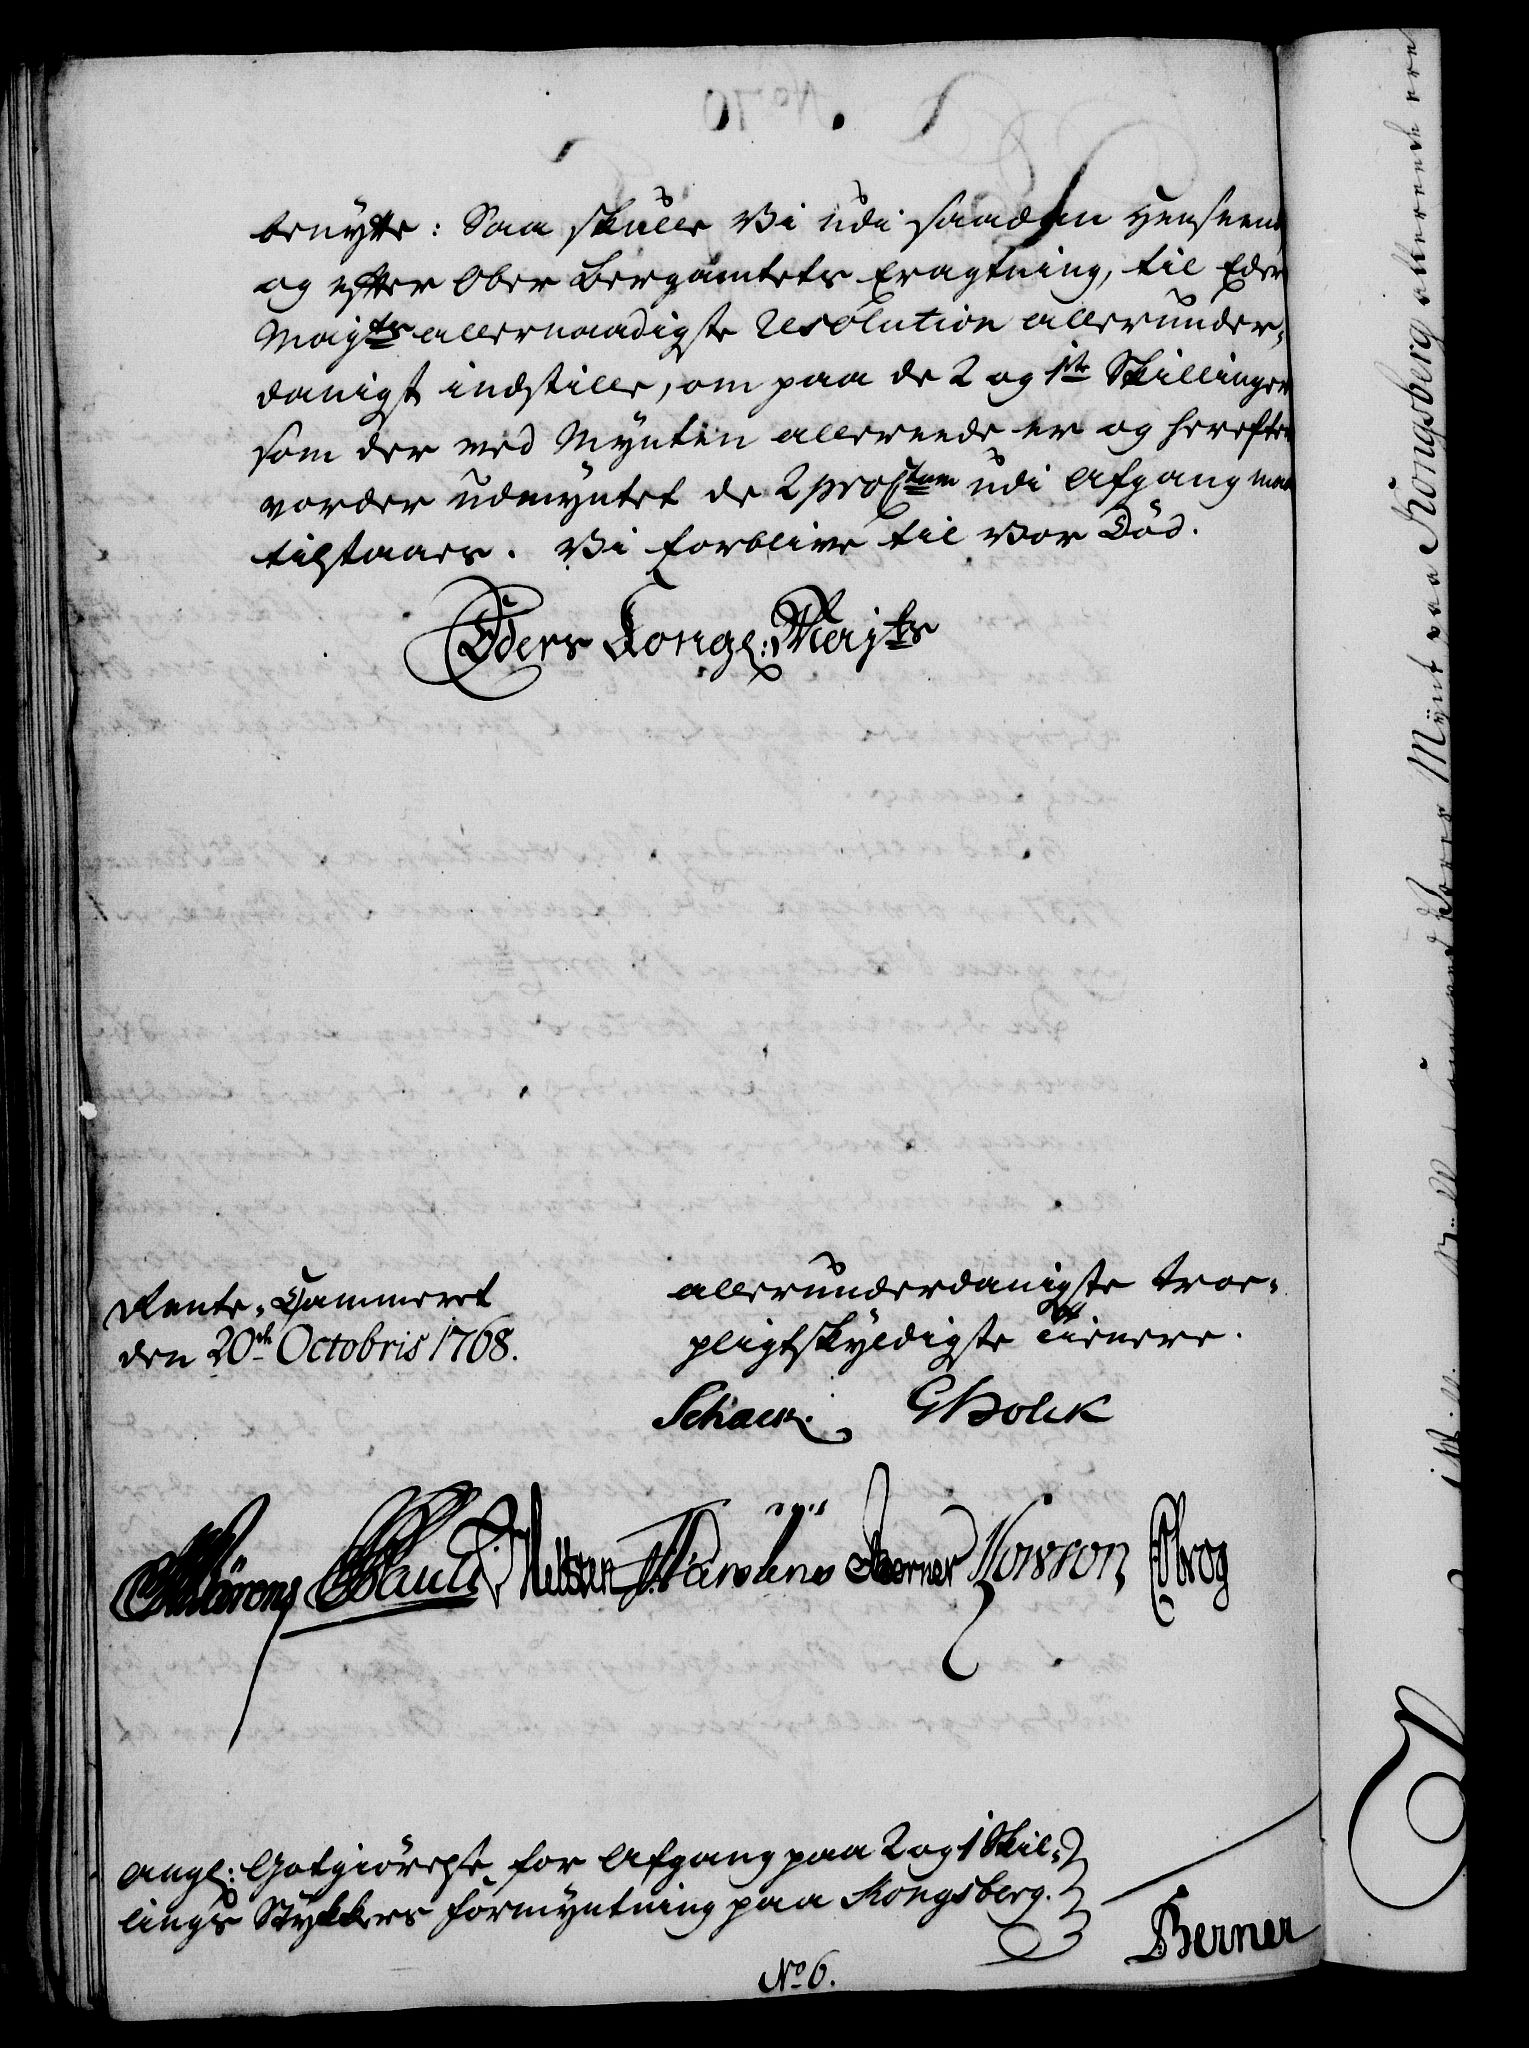 benytte: Saa skulle Vi udi saadan Henseende
og efter Ober Bergamtets Eragtning, til Eders
Majts allernaadigste Resolution allerunder-
danigst indstille, om paa de 2 og 1te Skillinger
som der ved Mynten allereede er og herefter
vorder udmyntet de 2 proCtum udi Afgang maa
tilstaaes. Vi forblive til Vor Död.
Eders Kongl: Majts
Rente-Cammeret
den 20de Octobris 1768.
allerunderdanigste troe-
pligtskyldigste Tienere.
Schack. G Holck
Pauli Berner
angl: Godtgiörelse for Afgang paa 2 og 1 Skil-
lings Stykkers Formyntning paa Kongsberg.
Berner
No 6.
Mÿnt paa Kongsberg allereede ere